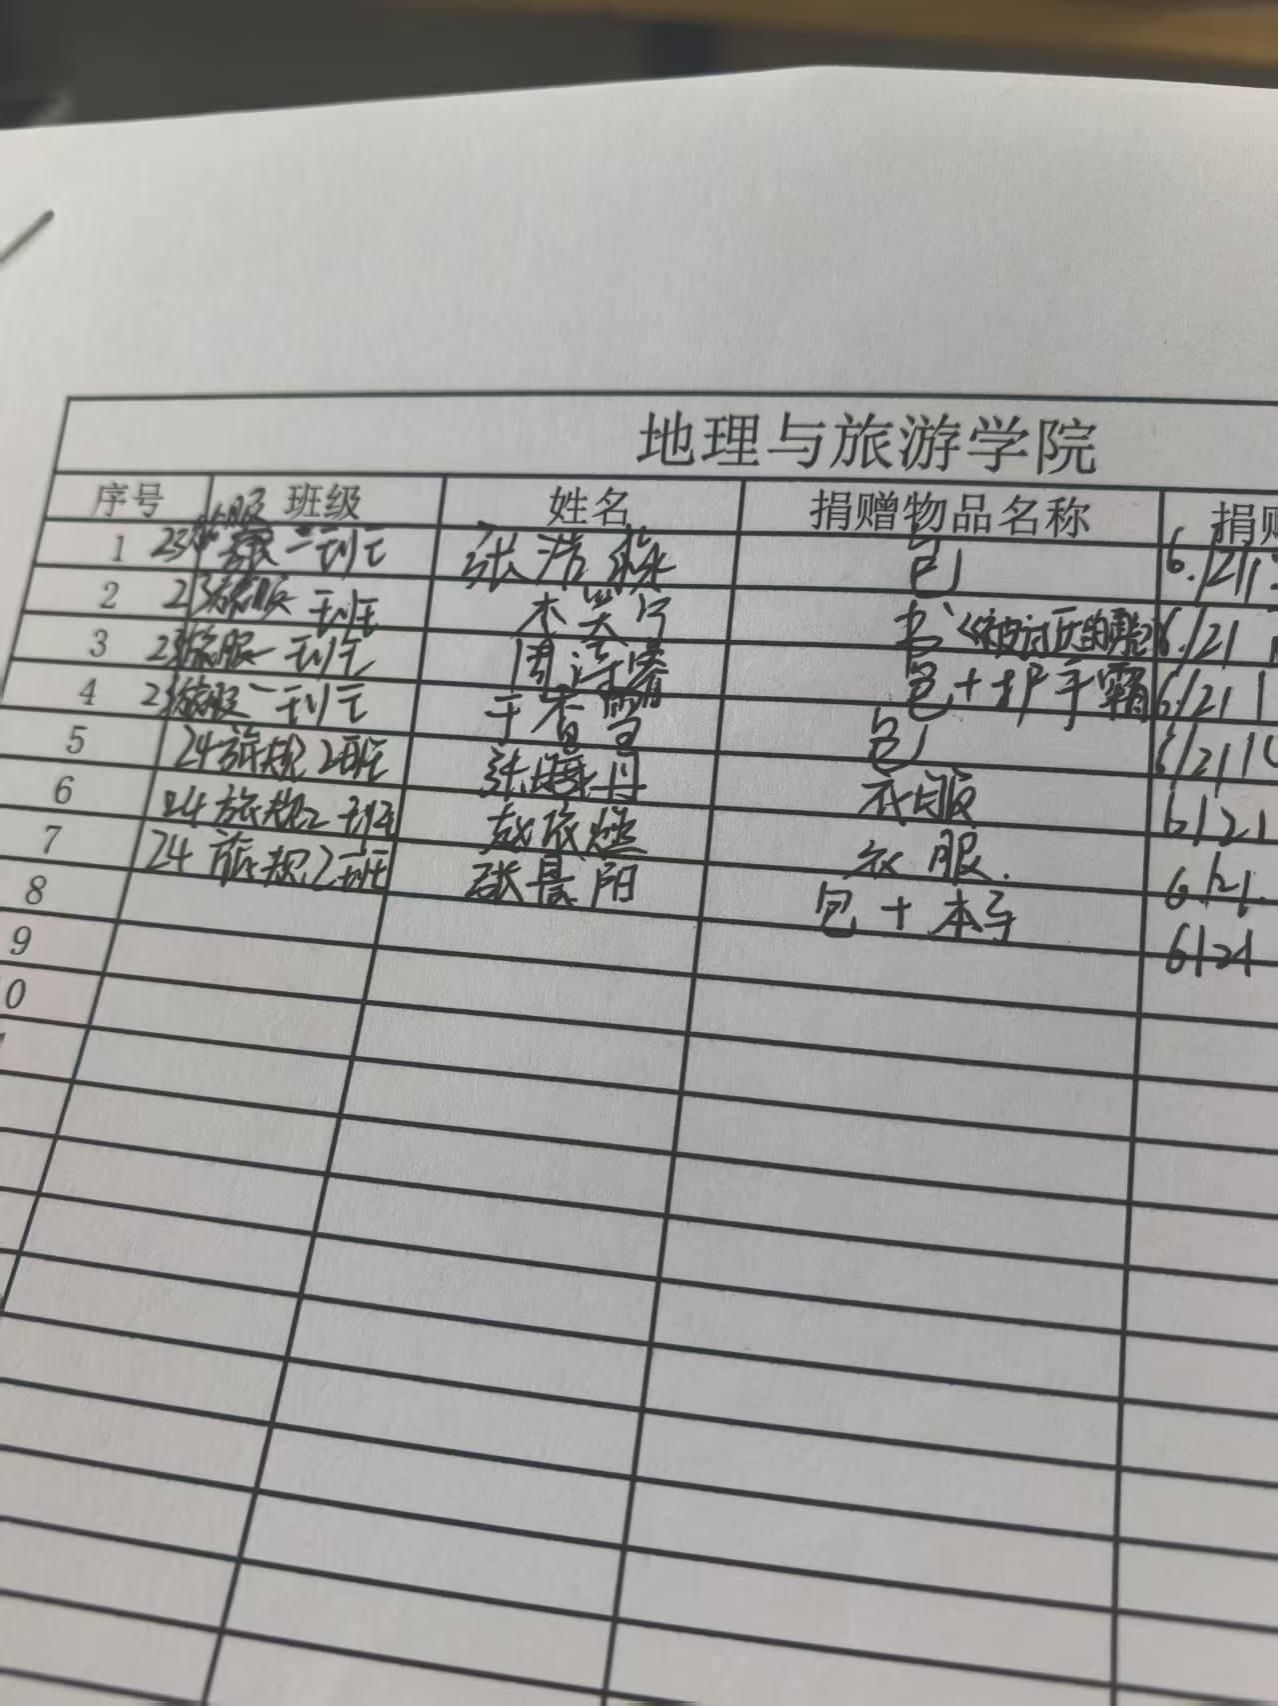 地理与旅游学院
序号 班级 姓名 捐赠物品名称 捐
1 23 旅服 二班 张浩 包 6.21
2 23旅服 一班 书 6/21
3 23旅服一班 周 包+护手霜 6/21
4 23旅服一班 于香雪 包 6/21
5 24旅规2班 张海丹 衣服 6/21
6 24旅规2班 赵依燃 衣服. 6.21.
7 24旅规2班 张景阳 包+本子 6/21
8
9
0